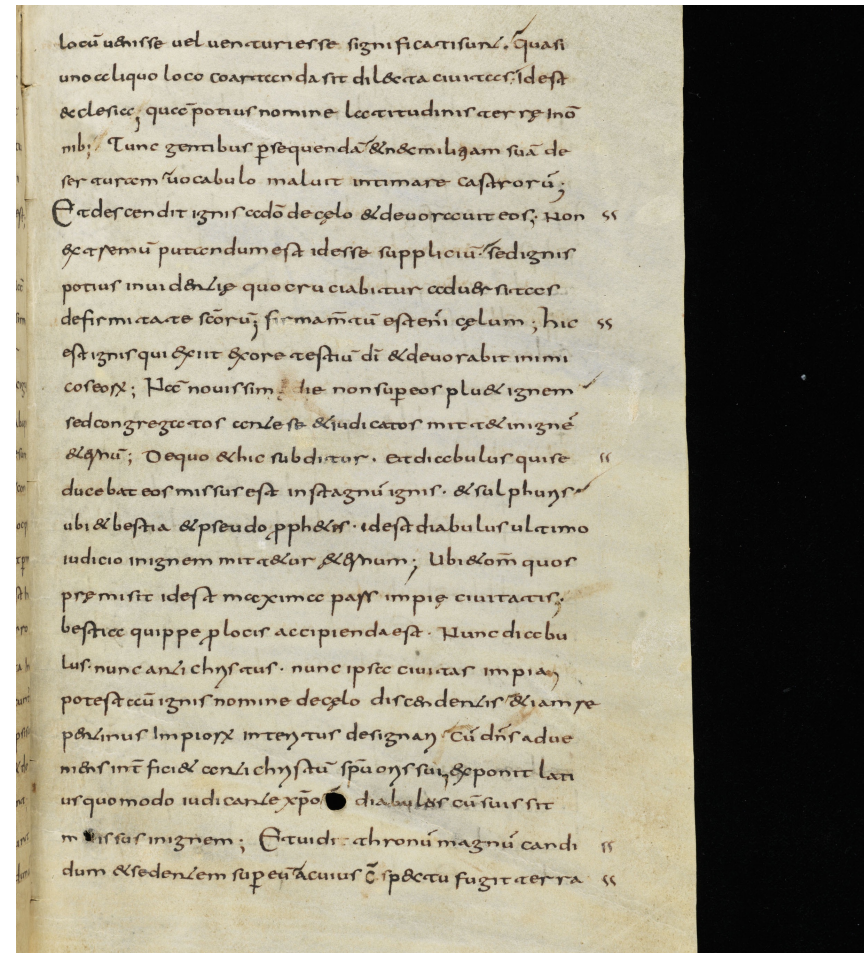 locū uenisse uel uenturi esse significati sunt. quasi
uno aliquo loco coartanda sit dilecta ciuitas; Idest
ecclesia; quae potius nomine latitudinis terrę Inō
nib; Tunc gentibus psequendā et nec militam suā de
serturam uocabulo maluit intimare castrorū;
Et descendit ignis a dō de cęlo et deuorauit eos; Non ss
extremū putandum est id esse suppliciū. sed ignis
potius inuidentię quo cruciabitur aduersitas
de firmitate scōrū; firmam̄tū est eni cęlum; hic ss
est ignis qui exiit ex ore testiū dī et deuorabit inimi
cos eorx; Nec nouissim die non sup eos pluet ignem
sed congregatos ante se et iudicatos mittet in igne
eternū; De quo et hic subditur. Et diabulus qui se ss
ducebat eos missus est in stagnū ignis. et sulphuris
ubi et bestia et pseudo pphetis. idest diabulus ultimo
iudicio in ignem mittetur eternum; Ubi et om̄ quos
pręmisit idest maxime pass impię ciuitatis;
bestia quippe p locis accipienda est. Nunc diabu
lus. nunc antichristus. nunc ipsa ciuitas impia
potest cū ignis nomine de cęlo discendentis etiam re
pentinus Impiorx interitus designari Cū dn̄s adue
niens int̄ficiet antichristū spū oris sui; exponit lati
us quomodo iudicante xp̄o diabulus cū suis sit
missus in ignem; Et uidi thronū magnū candi ss
dum et sedentem sup eū a cuius c̄spectu fugit terra ss